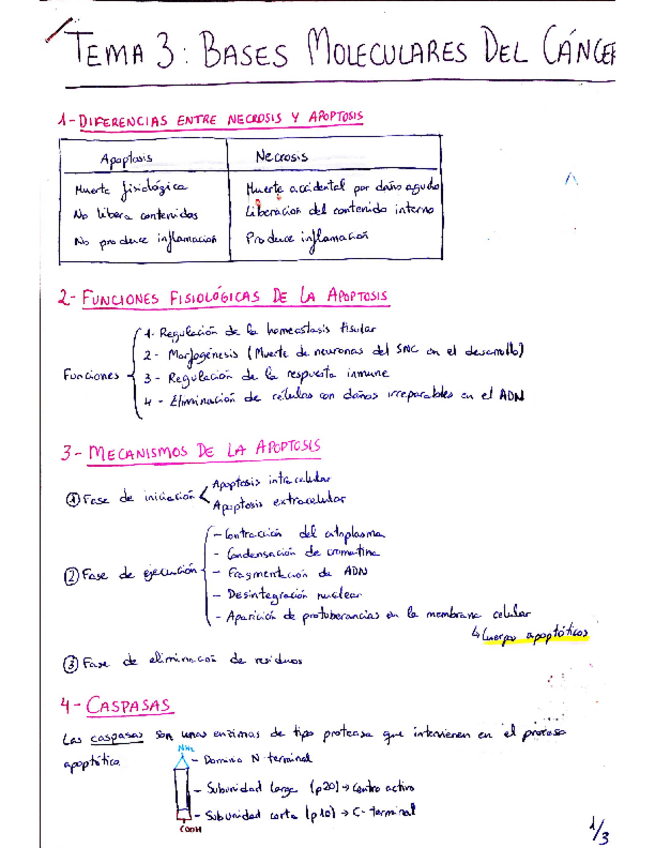 TEMA 3: BASES MOLECULARES DEL CÁNCER
1- DIFERENCIAS ENTRE NECROSIS Y APOPTOSIS
Apoptosis Necrosis
Muerte fisiológica Muerte accidental por daño agudo
No libera contenidos Liberación del contenido interno
No produce inflamación Produce inflamación
2- FUNCIONES FISIOLÓGICAS DE LA APOPTOSIS
Funciones
1- Regulación de la homeostasis tisular
2- Morfogénesis (Muerte de neuronas del SNC en el desarrollo)
3- Regulación de la respuesta inmune
4- Eliminación de células con daños irreparables en el ADN
3- MECANISMOS DE LA APOPTOSIS
① Fase de iniciación
Apoptosis intracelular
Apoptosis extracelular
② Fase de ejecución
- Contracción del citoplasma
- Condensación de cromatina
- Fragmentación de ADN
- Desintegración nuclear
- Aparición de protuberancias en la membrana celular
↳ Cuerpos apoptóticos
③ Fase de eliminación de residuos
4- CASPASAS
Las caspasas son unas enzimas de tipo proteasa que intervienen en el proceso
apoptótico
NH₂
- Dominio N-terminal
- Subunidad larga (p20) → Centro activo
- Subunidad corta (p10) → C-terminal
COOH
1/3